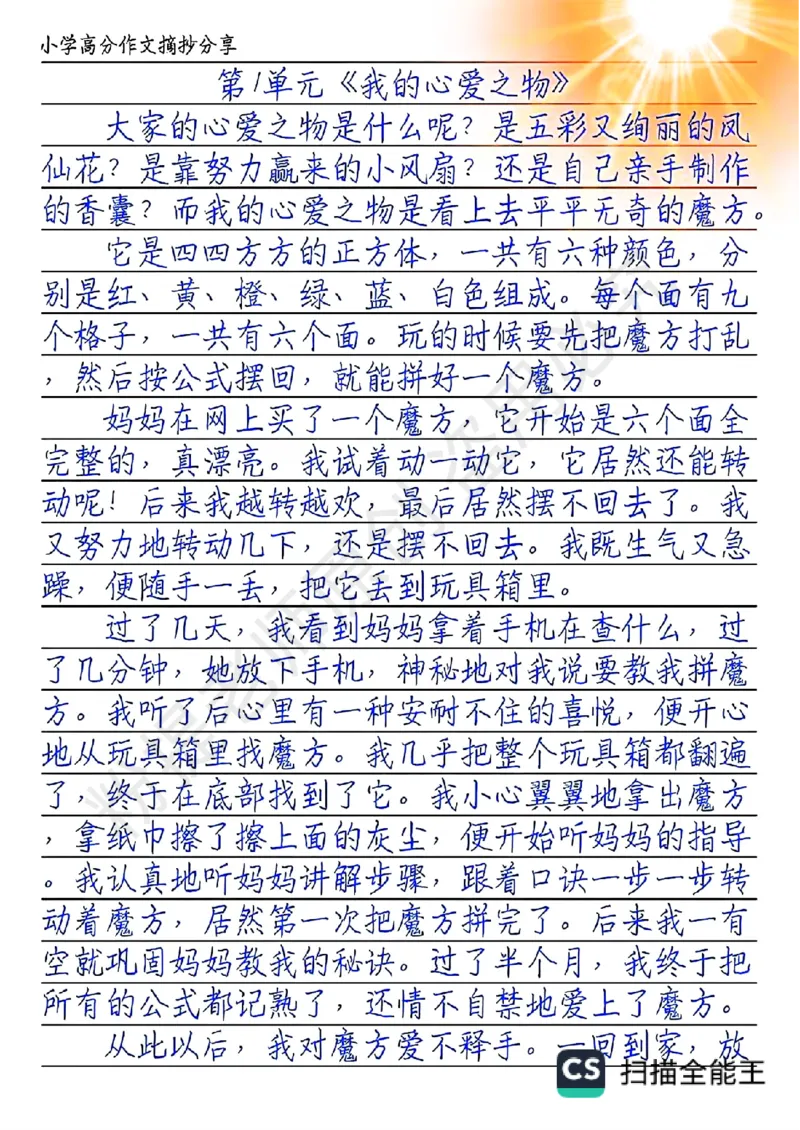 小学高分作文摘抄分享
第1单元《我的心爱之物》
大家的心爱之物是什么呢？是五彩又绚丽的凤
仙花？是靠努力赢来的小风扇？还是自己亲手制作
的香囊？而我的心爱之物是看上去平平无奇的魔方。
它是四四方方的正方体，一共有六种颜色，分
别是红、黄、橙、绿、蓝、白色组成。每个面有九
个格子，一共有六个面。玩的时候要先把魔方打乱
，然后按公式摆回，就能拼好一个魔方。
妈妈在网上买了一个魔方，它开始是六个面全
完整的，真漂亮。我试着动一动它，它居然还能转
动呢！后来我越转越欢，最后居然摆不回去了。我
又努力地转动几下，还是摆不回去。我既生气又急
躁，便随手一丢，把它丢到玩具箱里。
过了几天，我看到妈妈拿着手机在查什么，过
了几分钟，她放下手机，神秘地对我说要教我拼魔
方。我听了后心里有一种安耐不住的喜悦，便开心
地从玩具箱里找魔方。我几乎把整个玩具箱都翻遍
了，终于在底部找到了它。我小心翼翼地拿出魔方
，拿纸巾擦了擦上面的灰尘，便开始听妈妈的指导
。我认真地听妈妈讲解步骤，跟着口诀一步一步转
动着魔方，居然第一次把魔方拼完了。后来我一有
空就巩固妈妈教我的秘诀。过了半个月，我终于把
所有的公式都记熟了，还情不自禁地爱上了魔方。
从此以后，我对魔方爱不释手。一回到家，放
CS 扫描全能王